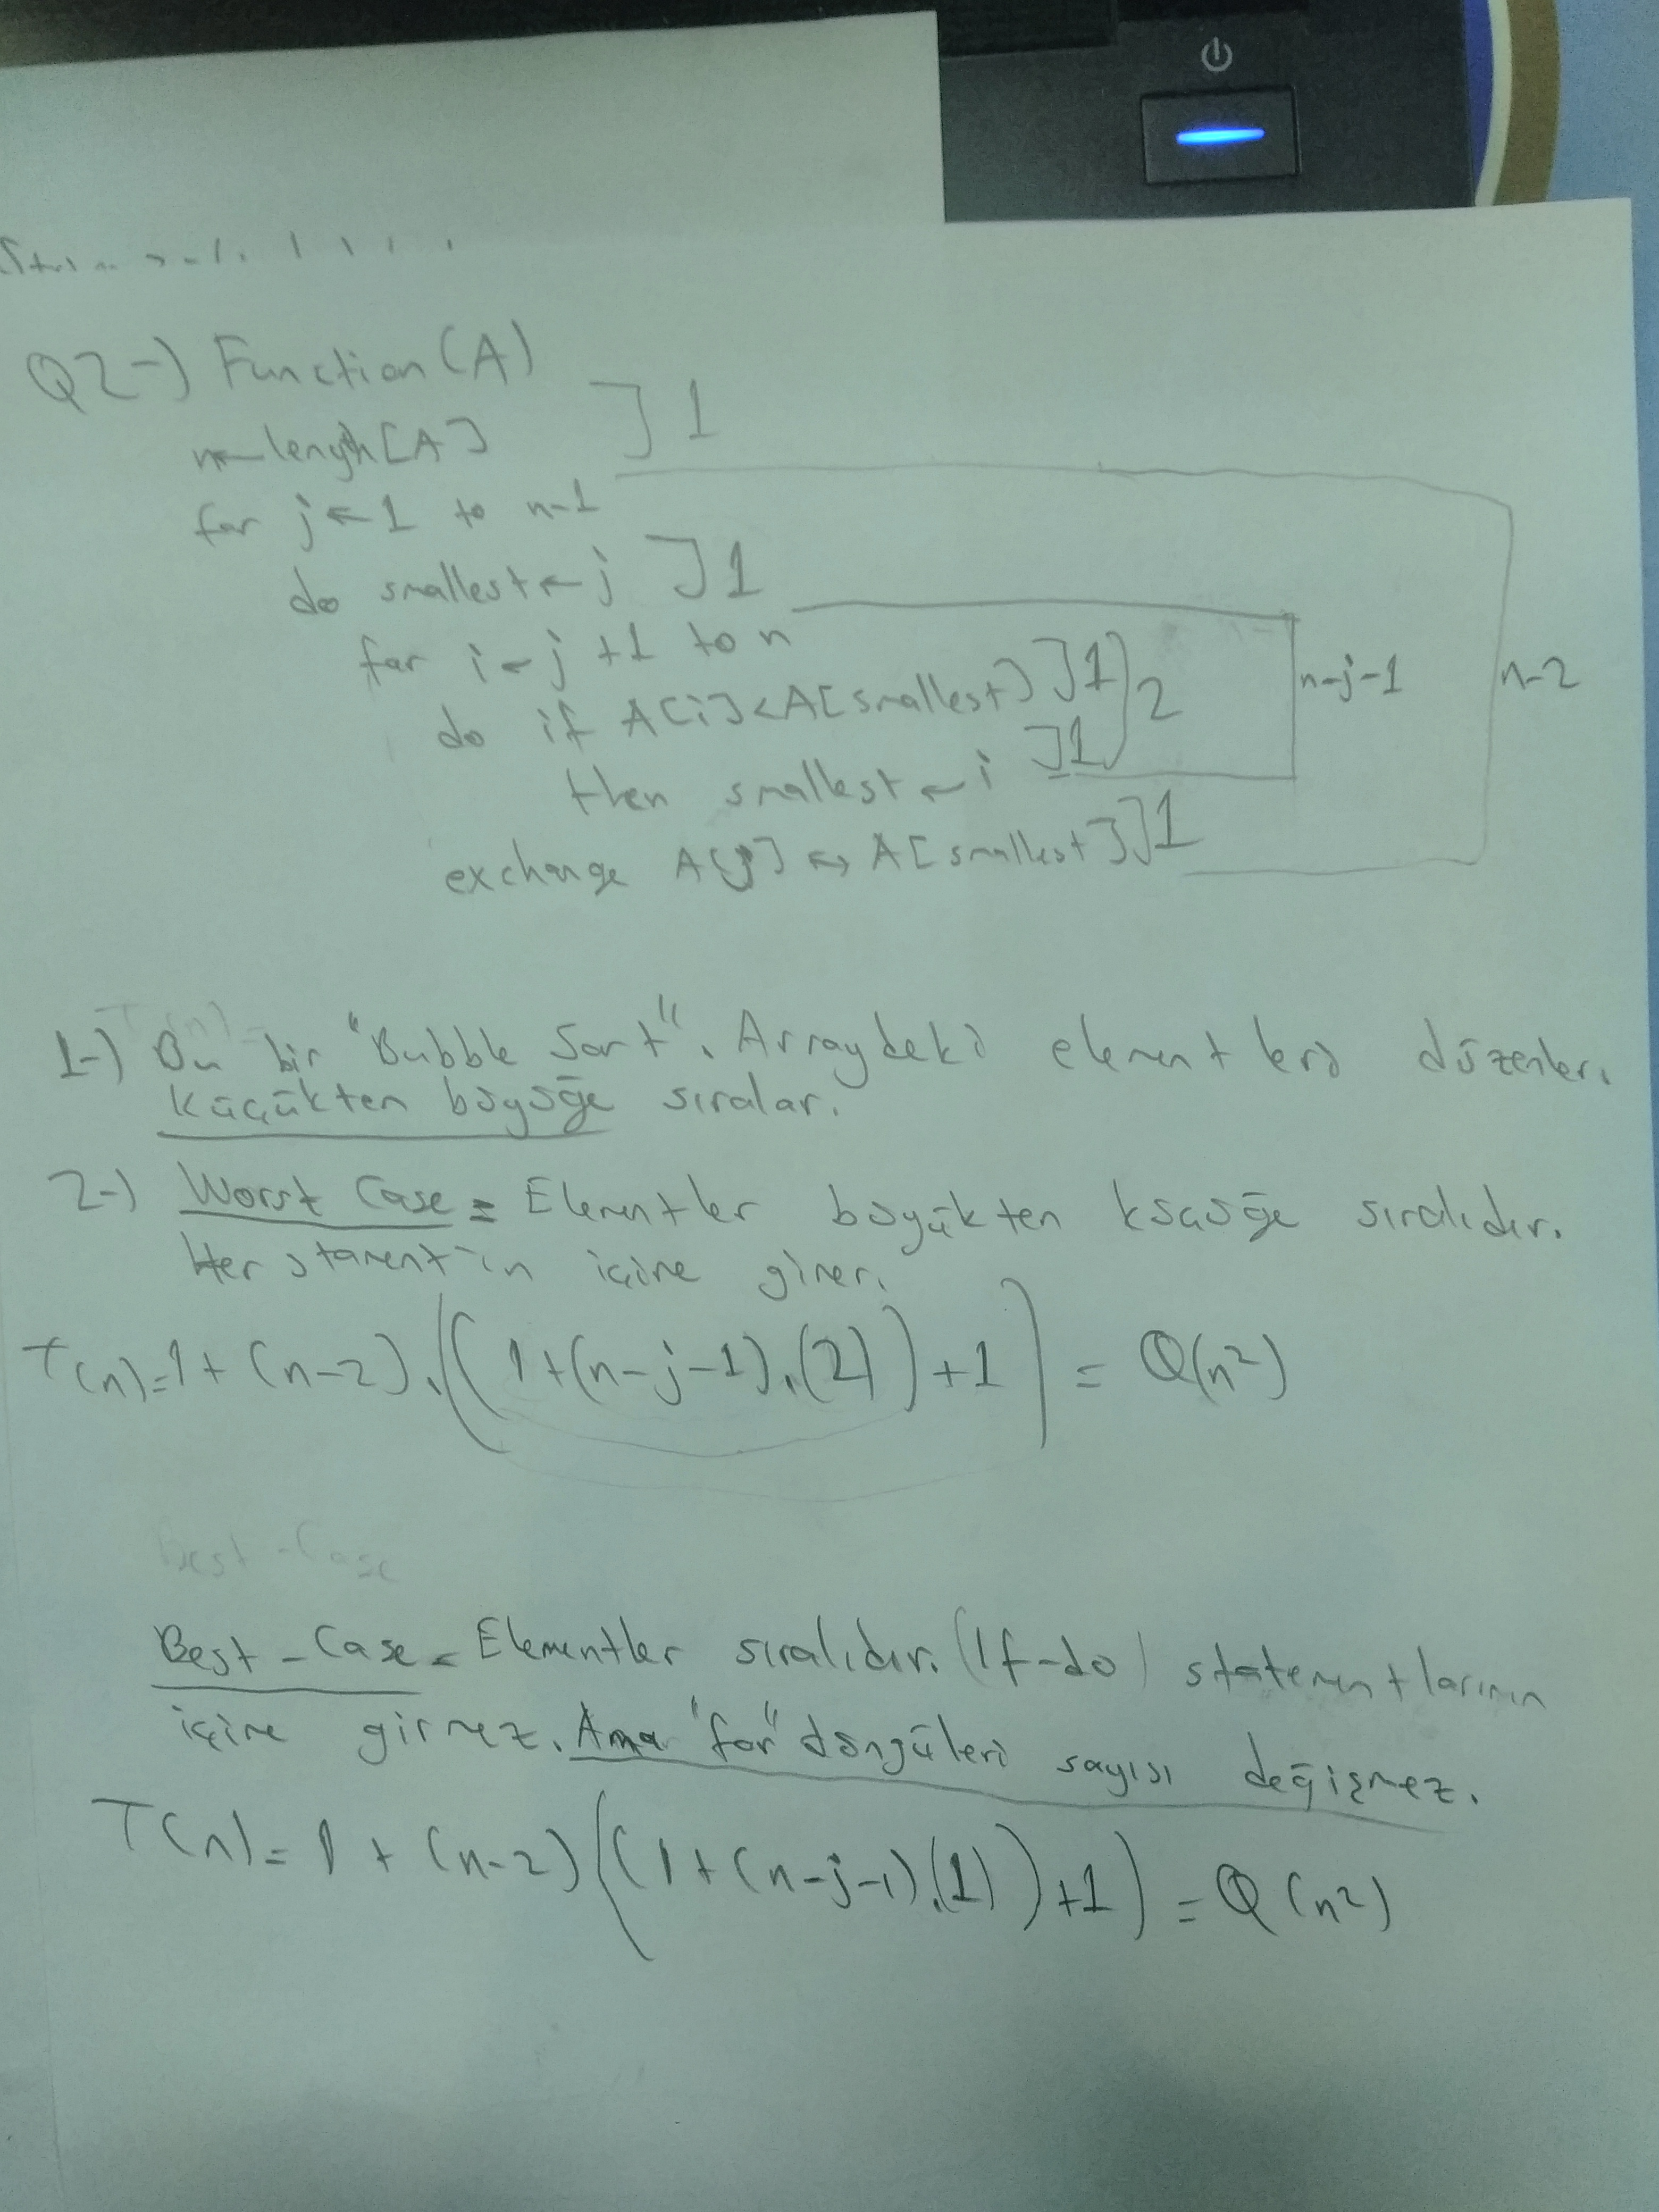 Q2-) Function(A)
n←length[A] ]1
for j←1 to n-1
do smallest←j ]1
for i←j+1 to n
do if A[i]<A[smallest] ]1 )2 n-j-1 n-2
then smallest←i ]1
exchange A[j]↔A[smallest] ]1
1-) Bu bir "Bubble Sort". Arraydeki elementleri düzenler.
Küçükten büyüğe sıralar.
2-) Worst Case = Elementler büyükten küçüğe sıralıdır.
Her stament in içine girer.
T(n)=1+(n-2).((1+(n-j-1).(2))+1) = Θ(n²)
Best-Case
Best-Case = Elementler sıralıdır. (If-do) statementlarının
içine girmez. Ama "for" döngüleri sayısı değişmez.
T(n)=1+(n-2)((1+(n-j-1).(1))+1) = Θ(n²)